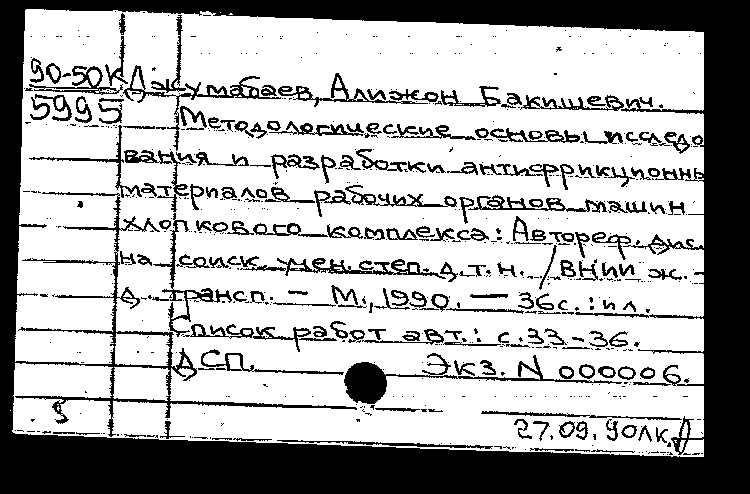 90-50К Джумабаев, Алижон Бакишевич.
5995 Методологические основы исследо
вания и разработки антифрикционнь
материалов рабочих органов машин
хлопкового комплекса: Автореф. дис.
на соиск. учен. степ. д.т.н. / ВНИИ ж.-
д. трансп. — М., 1990. — 36с.: ил.
Список работ авт.: с.33-36.
ДСП. Экз. N 000006.
27.09.90лк.